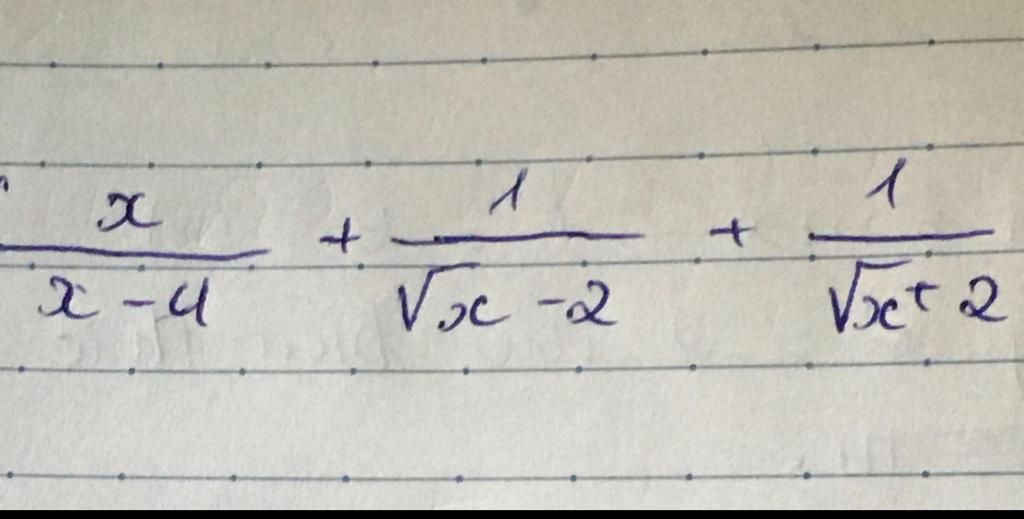 x/(x-4) + 1/(√x -2) + 1/(√x+2)